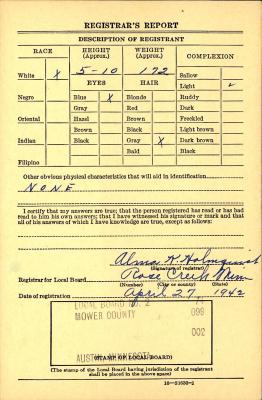 REGISTRAR'S REPORT
DESCRIPTION OF REGISTRANT
RACE
HEIGHT (Approx.)
WEIGHT (Approx.)
COMPLEXION
White X
5-10
172
Sallow
EYES
HAIR
Light ✓
Negro
Blue X
Blonde
Ruddy
Gray
Red
Dark
Oriental
Hazel
Brown
Freckled
Brown
Black
Light brown
Indian
Black
Gray X
Dark brown
Bald
Black
Filipino
Other obvious physical characteristics that will aid in identification
NONE
I certify that my answers are true; that the person registered has read or has had
read to him his own answers; that I have witnessed his signature or mark and that
all of his answers of which I have knowledge are true, except as follows:
Alma K. Holmquist
(Signature of registrar)
Registrar for Local Board Rose Creek Minn
(Number) (City or county) (State)
Date of registration April 27, 1942
LOCAL BOARD NO. 2
MOWER COUNTY
099
002
AUSTIN, MINNESOTA
(STAMP OF LOCAL BOARD)
(The stamp of the Local Board having jurisdiction of the registrant
shall be placed in the above space)
16-21630-2